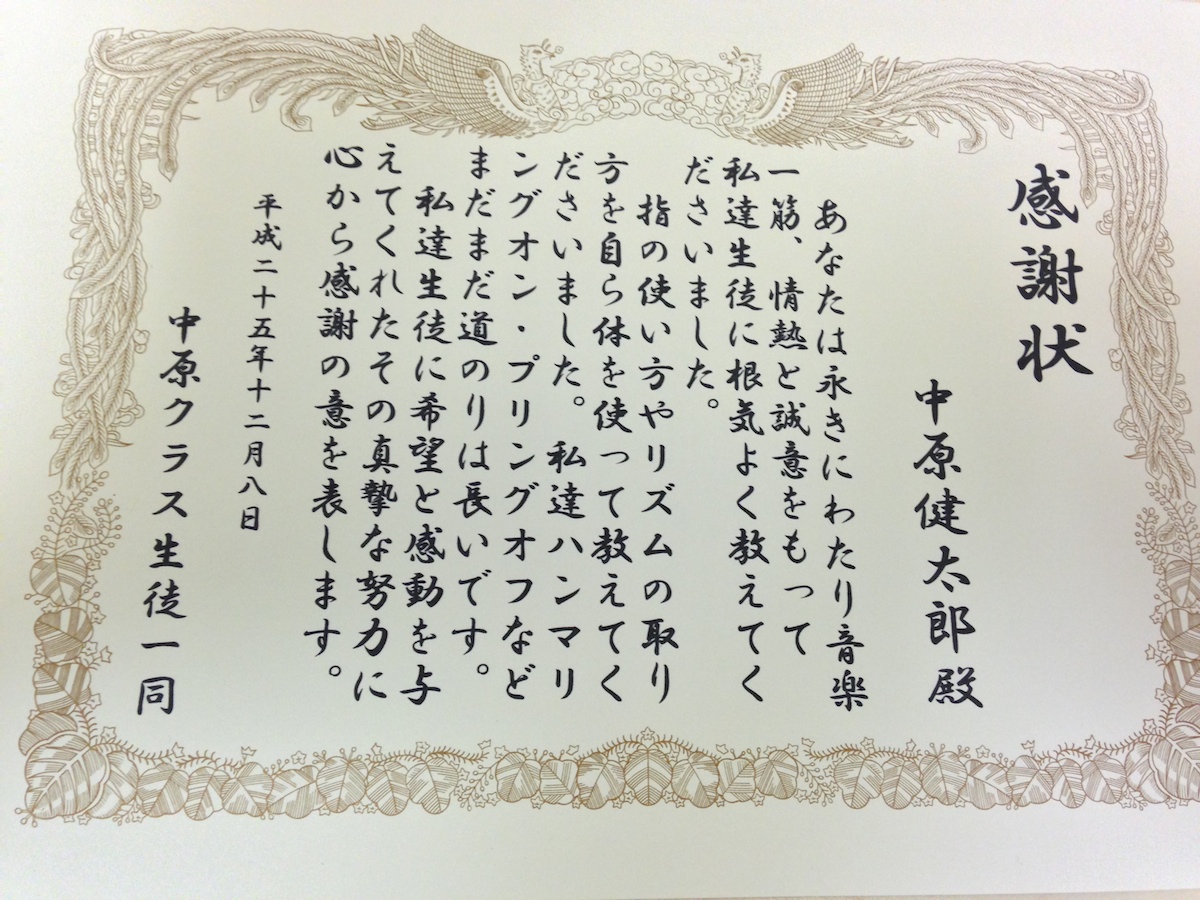 感謝状
中原健太郎殿
あなたは永きにわたり音楽
一筋、情熱と誠意をもって
私達生徒に根気よく教えてく
ださいました。
指の使い方やリズムの取り
方を自ら体を使って教えてく
ださいました。私達ハンマリ
ングオン・プリングオフなど
まだまだ道のりは長いです。
私達生徒に希望と感動を与
えてくれたその真摯な努力に
心から感謝の意を表します。
平成二十五年十二月八日
中原クラス生徒一同